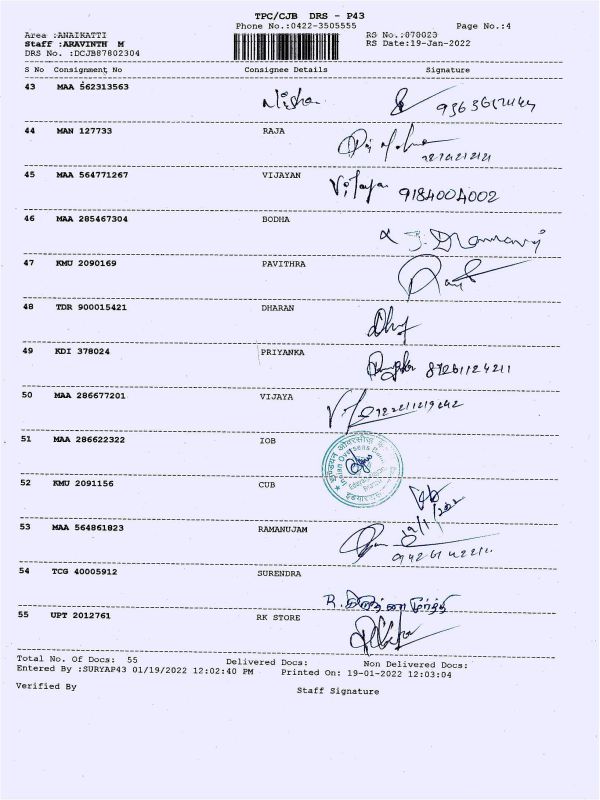 TPC/CJB DRS - P43
Phone No.:0422-3505555 Page No.:4
Area :ANAIKATTI RS No.:878023
Staff :ARAVINTH M RS Date:19-Jan-2022
DRS No. :DCJB87802304
S No Consignment No Consignee Details Signature
43 MAA 562313563
Nisha
44 MAN 127733 RAJA
45 MAA 564771267 VIJAYAN
9184004002
46 MAA 285467304 BODHA
47 KMU 2090169 PAVITHRA
48 TDR 900015421 DHARAN
49 KDI 378024 PRIYANKA
50 MAA 286677201 VIJAYA
51 MAA 286622322 IOB
Indian Overseas Bank
52 KMU 2091156 CUB
53 MAA 564861823 RAMANUJAM
54 TCG 40005912 SURENDRA
55 UPT 2012761 RK STORE
Total No. Of Docs: 55 Delivered Docs: Non Delivered Docs:
Entered By :SURYAP43 01/19/2022 12:02:40 PM Printed On: 19-01-2022 12:03:04
Verified By Staff Signature